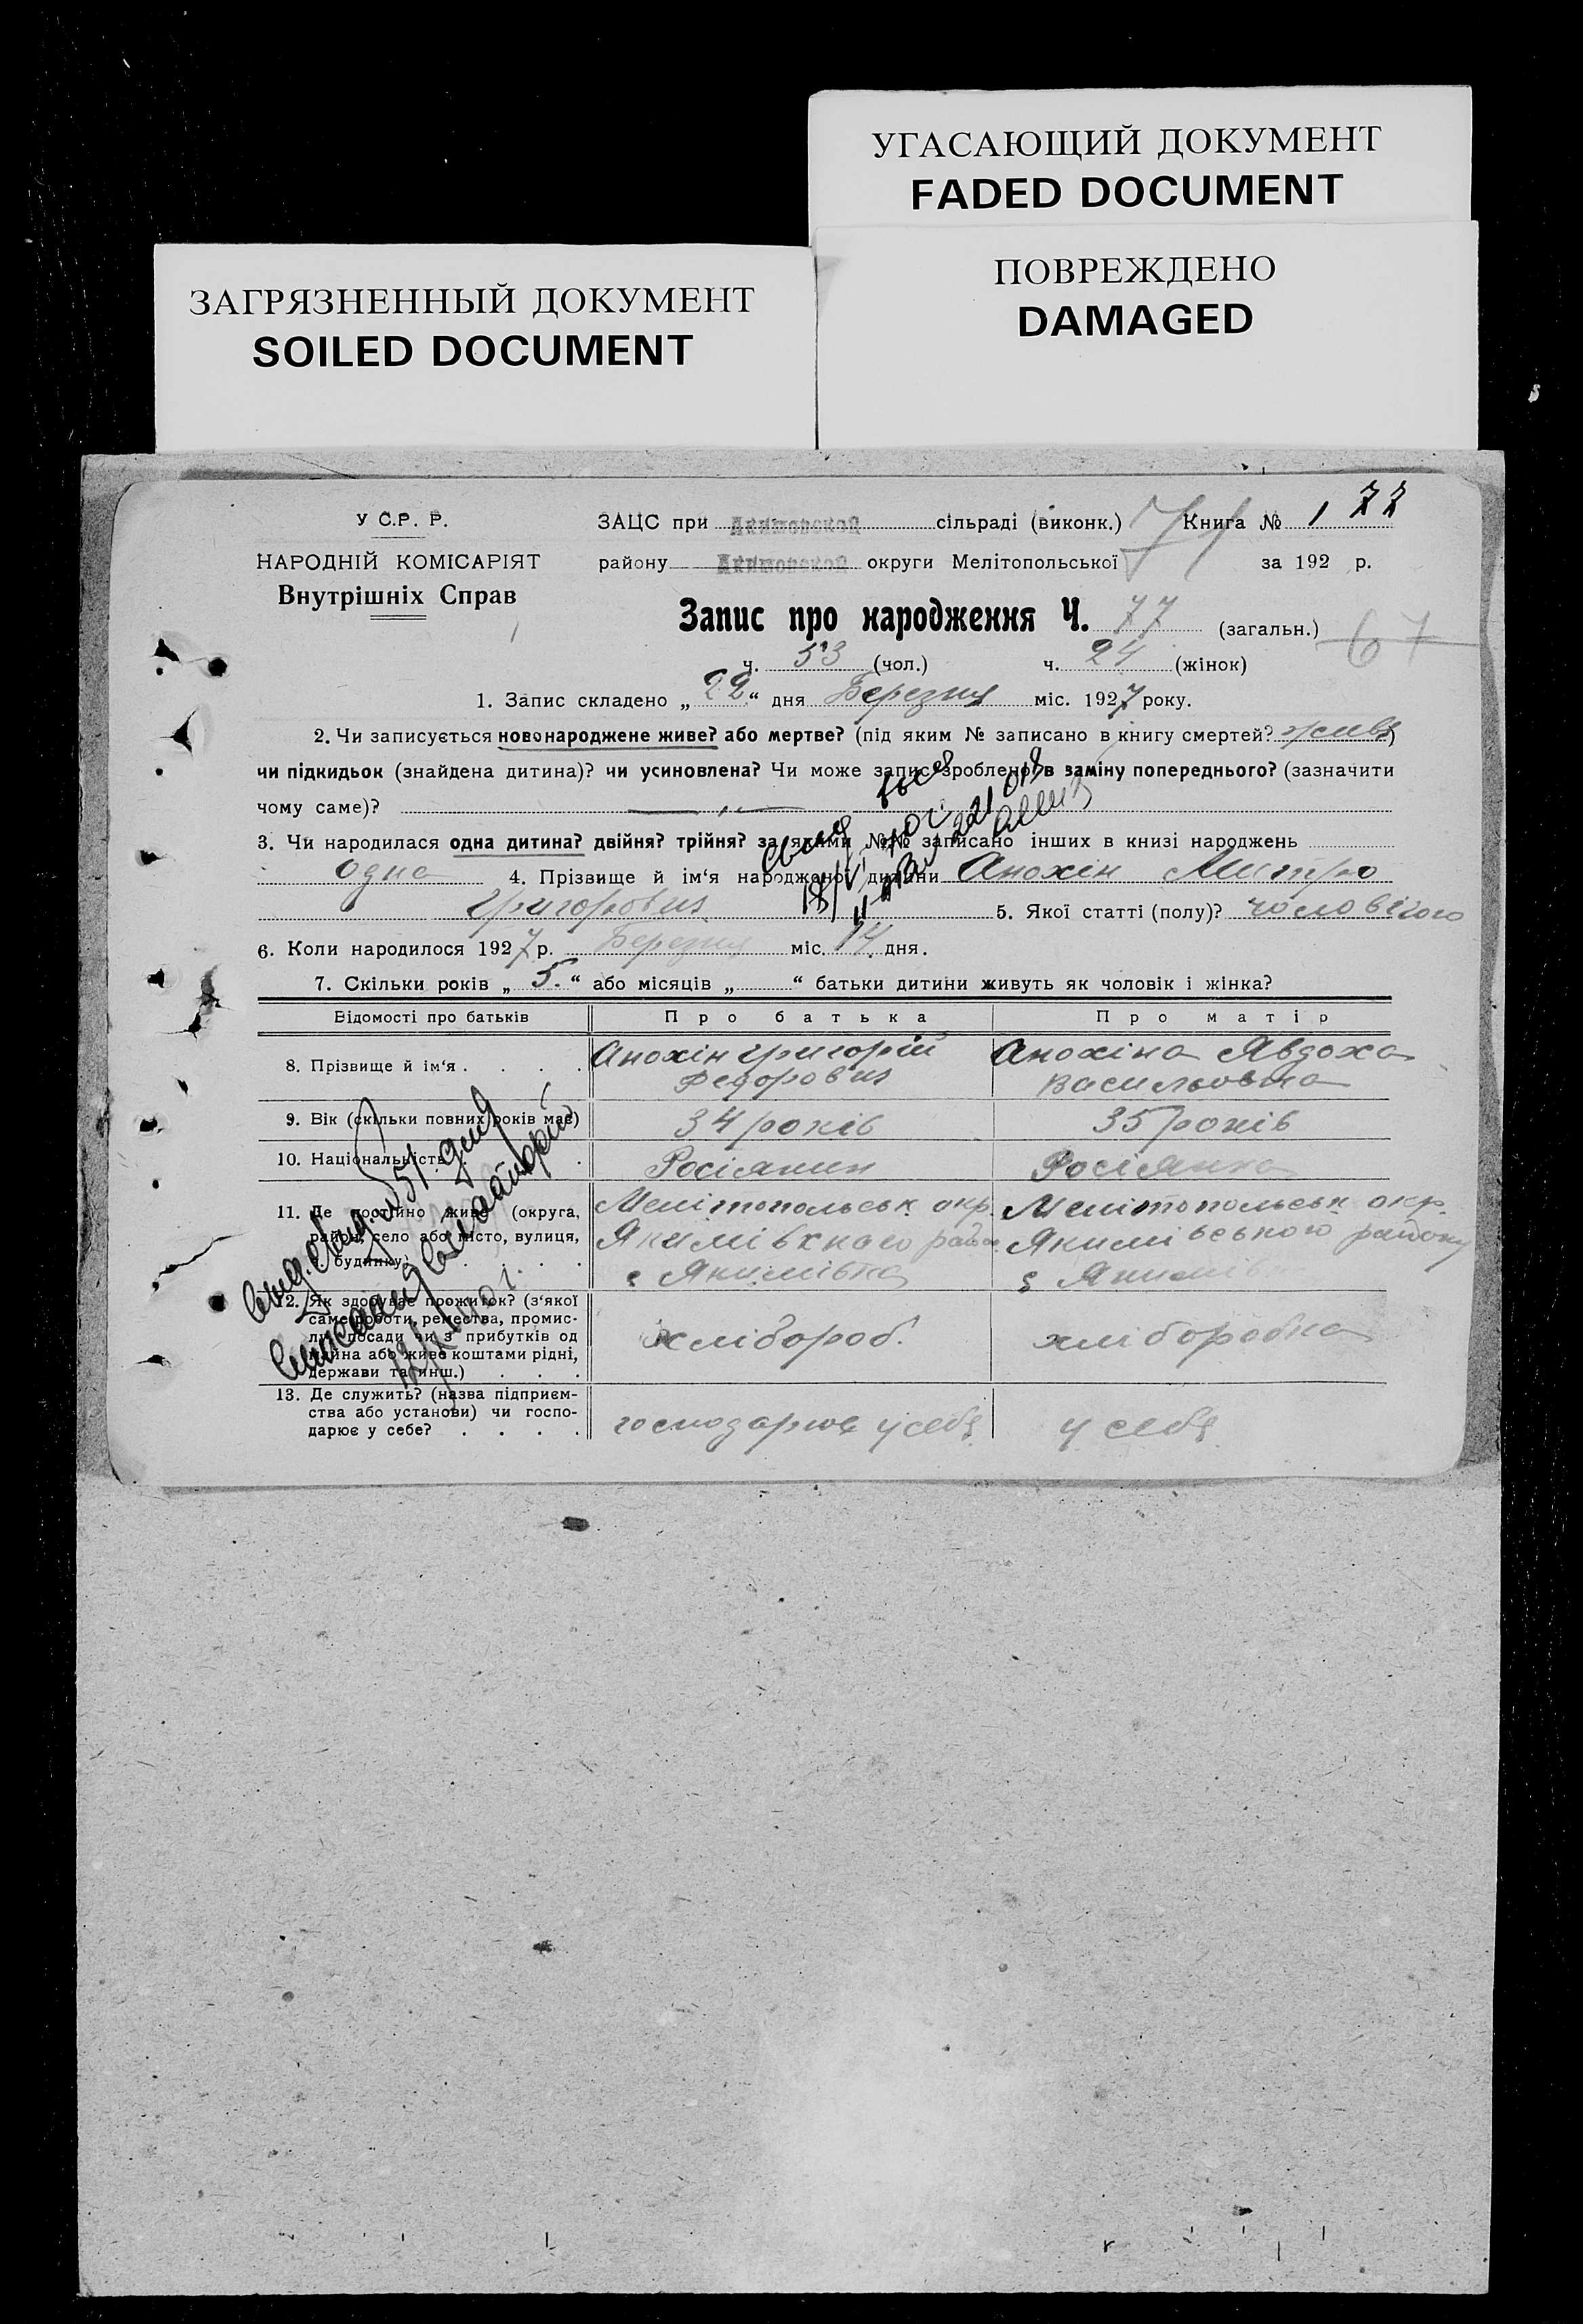 УГАСАЮЩИЙ ДОКУМЕНТ
FADED DOCUMENT
ПОВРЕЖДЕНО
DAMAGED
ЗАГРЯЗНЕННЫЙ ДОКУМЕНТ
SOILED DOCUMENT
У С.Р. Р.
НАРОДНІЙ КОМІСАРІЯТ
Внутрішніх Справ
ЗАЦС при Акимовской сільраді (виконк.) Книга № 1 77
району Акимовской округи Мелітопольської за 192 р.
Запис про народження Ч. 77 (загальн.) 67
ч. 53 (чол.) ч. 24 (жінок)
1. Запис складено „22“ дня Березня міс. 1927 року.
2. Чи записується новонароджене живе? або мертве? (під яким № записано в книгу смертей? живе)
чи підкидьок (знайдена дитина)? чи усиновлена? Чи може запис зроблено в заміну попереднього? (зазначити
чому саме)?
3. Чи народилася одна дитина? двійня? трійня? за якими №№ записано інших в книзі народжень
одна 4. Прізвище й ім‘я народженої дитини Анохін Митро
Григорович 5. Якої статті (полу)? чоловічого
6. Коли народилося 1927 р. Березня міс. 14 дня.
7. Скільки років „ 5. “ або місяців „ “ батьки дитини живуть як чоловік і жінка?
Відомості про батьків Про батька Про матір
8. Прізвище й ім‘я . . . . Анохін Григорій Федорович Анохіна Явдоха Васильовна
9. Вік (скільки повних років має) 34 років 35 років
10. Національність . . . Росіянин Росіянка
11. Де постійно живе (округа, Мелітопольськ окр. Мелітопольськ окр.
район, село або місто, вулиця, району Якимівського району
№ будинку) . . . . с Якимівка с
12. Як здобуває прожиток? (з‘якої
саме роботи, ремества, промис-
лу, посади чи з прибутків од хлібороб. хліборобка
майна або живе коштами рідні,
держави та инш.) . . .
13. Де служить? (назва підприєм-
ства або установи) чи госпо- господарює у себе у себе
дарює у себе? . . . .